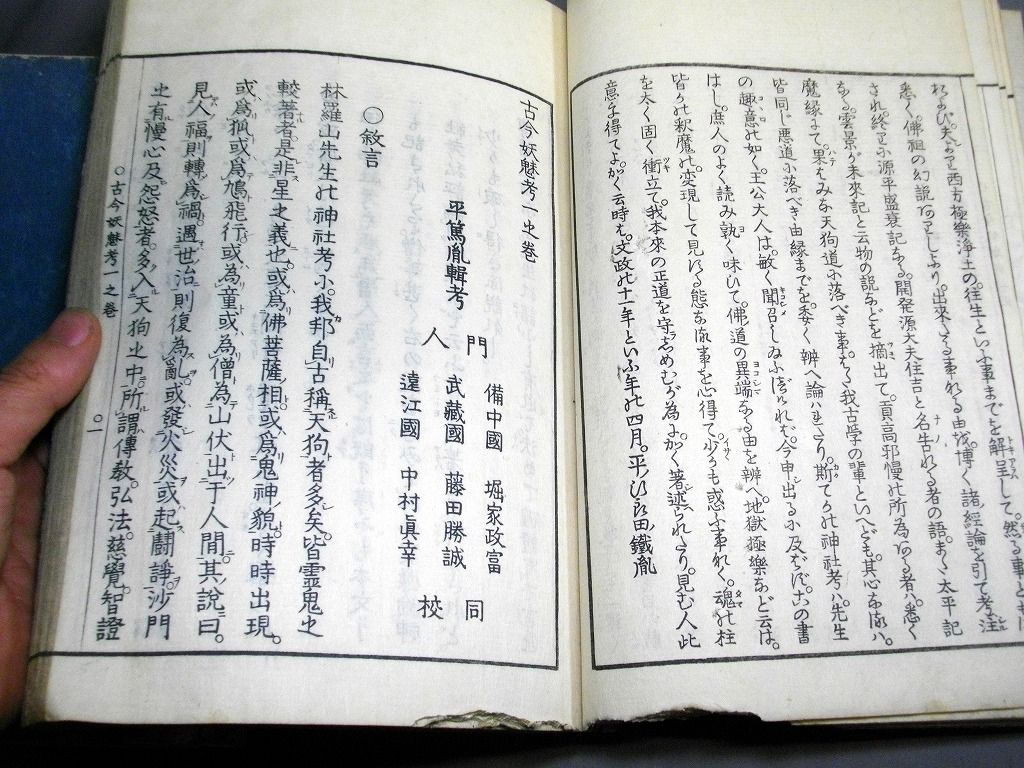 悉く佛祖の幻説
西方極樂淨土の往生といふ事までを解呈して。
博く諸經論を引て考注
され。終には源平盛衰記なる。開發源大夫住吉と名告れる者の語また太平記
なる。雲景が未來記と云物の説などを摘出て。貢高邪慢の所為
魔縁にて。果はみな天狗道に落べき事。また我古學の輩といへども。其心
皆同じ悪道に落べき由縁までを委く辨へ論はれたり。斯てかの神社考は先生
の趣意の如く。王公大人は。敏く聞召し
はし。庶人のよく読み孰く味ひて。佛道の異端なる由を辨へ。地獄極樂など云は。
皆かの釈魔の変現して見
を太く固く衝立て。我本來の正道を守らしめむが為に。かく著述られたり。見む人此
意を得てよ。かく云時は。文政の十一年といふ年の四月。平
古今妖魅考一之卷
平篤胤輯考
門人
備中國 堀家政富
武藏國 藤田勝誠
遠江國 中村眞幸
同校
○敘言
林羅山先生の神社考に。我邦自古稱天狗者多矣。皆靈鬼之
較著者。是非星之義也。或為佛菩薩相。或為鬼神貌。時時出現。
或為狐。或為鳩飛行。或為童。或為僧為山伏。出于人間。其説曰。
見人福則轉為禍。遇世治則復為亂。或發火災。或起鬪諍。沙門
之有慢心及怨怒者。多入天狗之中。所謂傳教。弘法。慈覺。智證
○古今妖魅考一之卷
○一